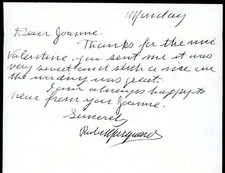 Monday
Dear Joanne.
Thanks for the nice
Valentine you sent me it was
very sweet and such a nice one
the wording was great.
I am always happy to
hear from you Joanne.
Sincerely